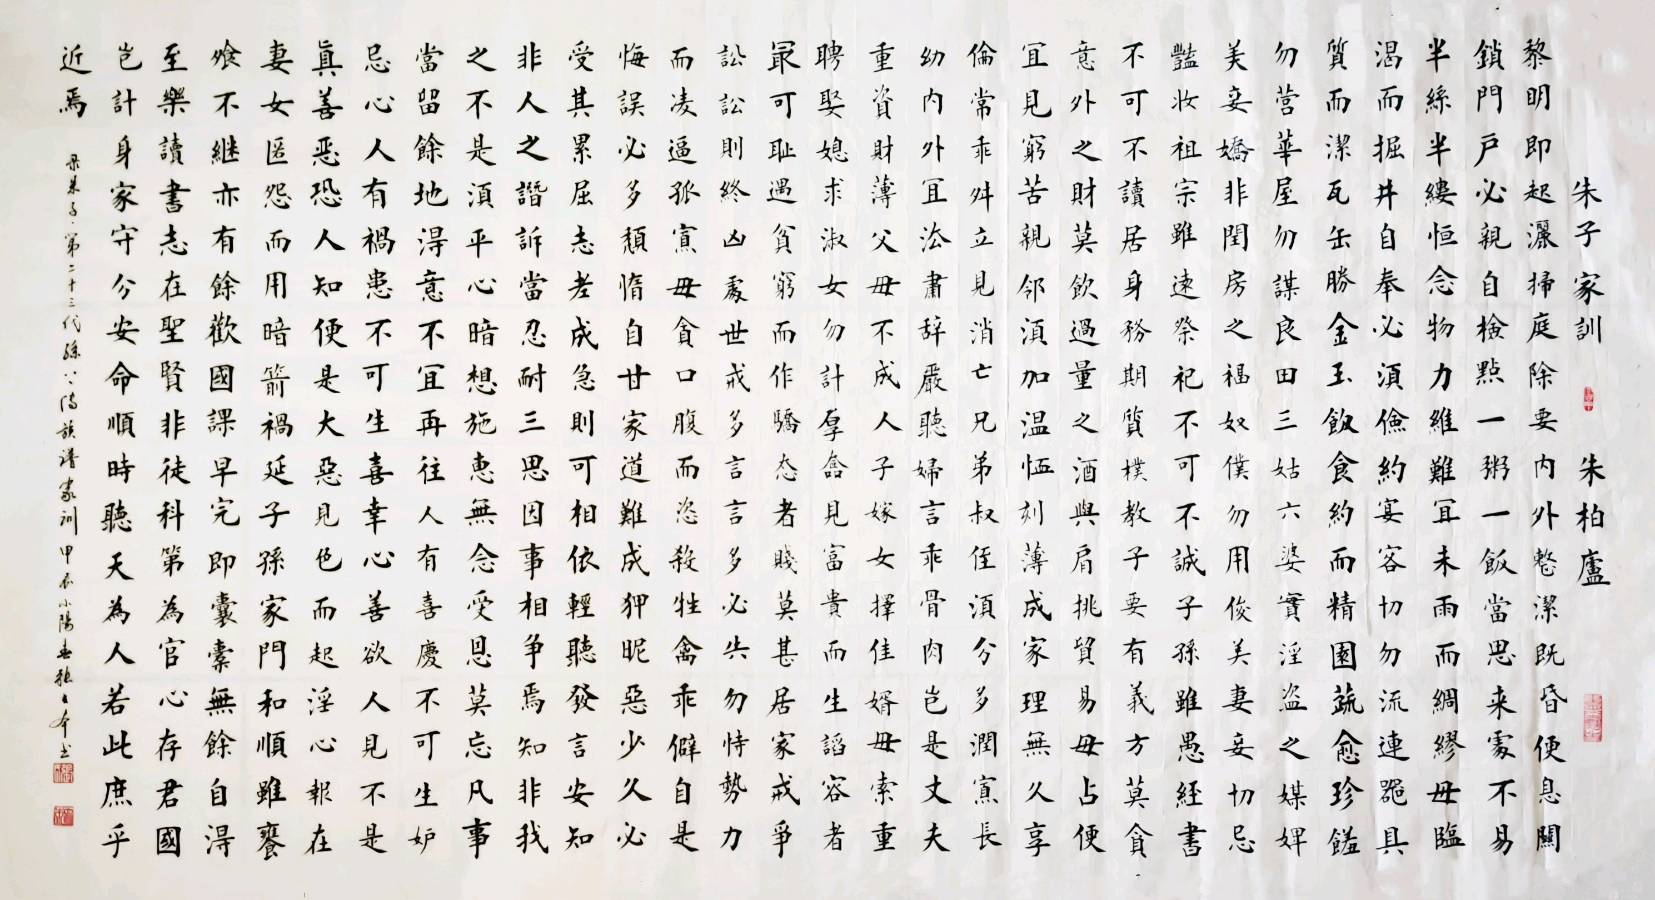 朱子家訓 朱柏廬
黎明即起灑掃庭除要內外整潔既昏便息關
鎖門戶必親自檢點一粥一飯當思来處不易
半絲半縷恒念物力維難宜未雨而綢繆毋臨
渴而掘井自奉必須儉約宴客切勿流連器具
質而潔瓦缶勝金玉飯食約而精園蔬愈珍饈
勿營華屋勿謀良田三姑六婆實淫盜之媒婢
美妾嬌非閨房之福奴僕勿用俊美妻妾切忌
豔妝祖宗雖遠祭祀不可不誠子孫雖愚經書
不可不讀居身務期質樸教子要有義方莫貪
意外之財莫飲過量之酒與肩挑貿易毋占便
宜見窮苦親邻須加温恤刻薄成家理無久享
倫常乖舛立見消亡兄弟叔侄須分多潤寡長
幼內外宜法肅辞嚴聽婦言乖骨肉岂是丈夫
重資財薄父母不成人子嫁女擇佳婿毋索重
聘娶媳求淑女勿計厚奩見富貴而生諂容者
最可耻遇貧窮而作驕态者賤莫甚居家戒爭
訟訟則終凶處世戒多言言多必失勿恃勢力
而凌逼孤寡毋貪口腹而恣殺牲禽乖僻自是
悔誤必多頹惰自甘家道難成狎昵惡少久必
受其累屈志老成急則可相依輕聽發言安知
非人之譖訴當忍耐三思因事相争焉知非我
之不是須平心暗想施惠無念受恩莫忘凡事
當留餘地得意不宜再往人有喜慶不可生妒
忌心人有禍患不可生喜幸心善欲人見不是
真善惡恐人知便是大惡見色而起淫心報在
妻女匿怨而用暗箭禍延子孫家門和順雖饔
飧不继亦有餘歡國課早完即囊橐無餘自得
至樂讀書志在聖賢非徒科第為官心存君國
岂計身家守分安命順時聽天為人若此庶乎
近焉
第二十三代孫 族譜家訓甲辰小陽春 書